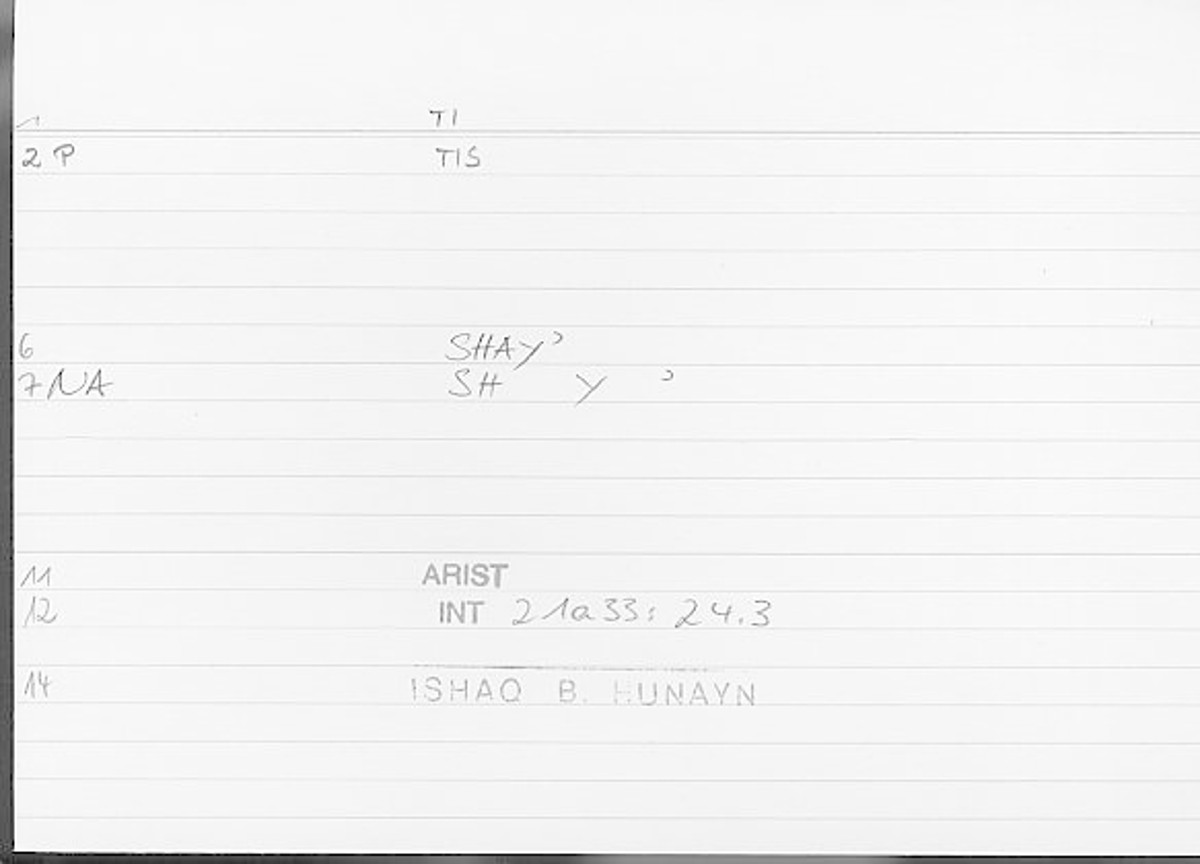 1 TI
2 P TIS
6 SHAY’
7 NA SH Y ’
11 ARIST
12 INT 21a33: 24.3
14 ISHAQ B. HUNAYN